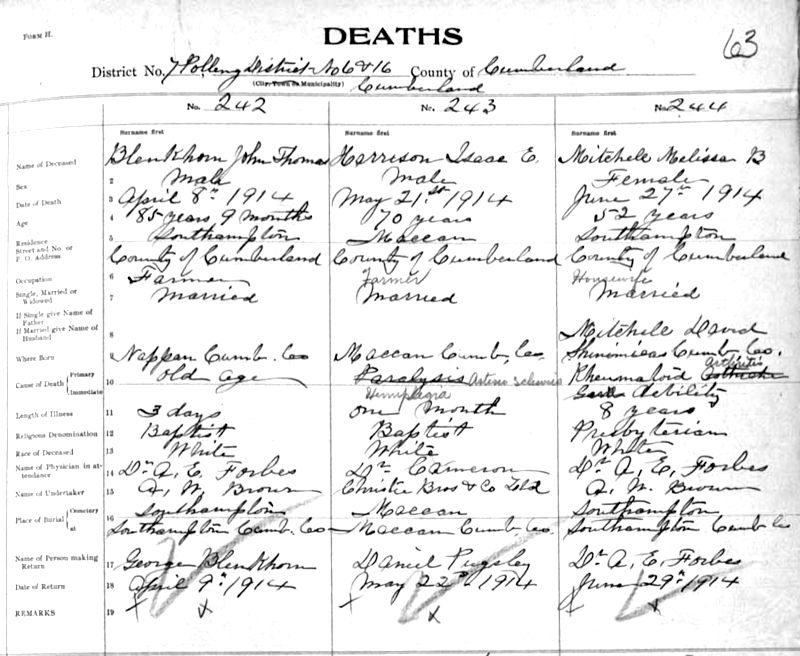 FORM H.
DEATHS
63
District No. 7 Polling District No 6 & 16 County of Cumberland
(City, Town or Municipality) Cumberland
No. 242 No. 243 No. 244
Surname first Surname first Surname first
Name of Deceased Blenkhorn John Thomas Harrison Isaac E. Mitchell Melissa B
Sex 2 Male Male Female
Date of Death 3 April 8th 1914 May 21st 1914 June 27th 1914
Age 4 85 years 9 months 70 years 52 years
Residence Street and No. or P. O. Address 5 Southampton Maccan Southampton
County of Cumberland County of Cumberland County of Cumberland
Occupation 6 Farmer Farmer Housewife
Single, Married or Widowed 7 Married Married Married
If Single give Name of Father
If Married give Name of Husband 8 Mitchell David
Where Born 9 Nappan Cumb. Co Maccan Cumb. Co. Shinimicas Cumb Co.
Cause of Death { Primary Immediate 10 Old age Paralysis Arterio Sclerosis Hemiplegia Rheumatoid Arthritis debility
Length of Illness 11 3 days One Month 8 years
Religious Denomination 12 Baptist Baptist Presbyterian
Race of Deceased 13 White White White
Name of Physician in attendance 14 Dr A. E. Forbes Dr Cameron Dr A. E. Forbes
Name of Undertaker 15 A. W. Brown Christie Bros & Co Ltd A. W. Brown
Place of Burial { Cemetery at 16 Southampton Maccan Southampton
Southampton Cumb. Co Maccan Cumb. Co. Southampton Cumb Co
Name of Person making Return 17 George Blenkhorn Daniel Pugsley Dr A. E. Forbes
Date of Return 18 April 9th 1914 May 22nd 1914 June 29th 1914
REMARKS 19 x x x x x x